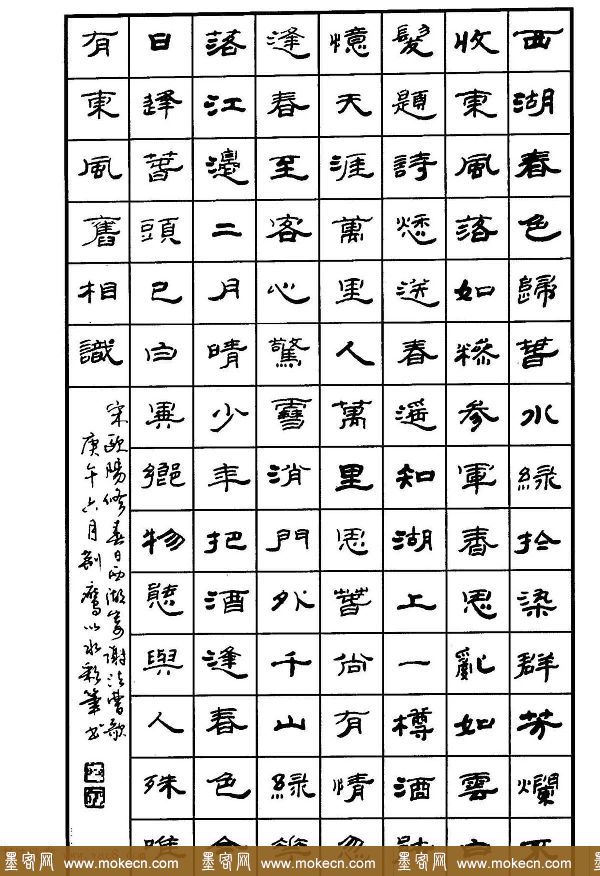 西湖春色歸春水綠扵染群芳爛不
收東風落如糝參軍春思亂如雲白
髮題詩愁送春遙知湖上一樽酒能
憶天涯萬里人萬里思春尚有情忽
逢春至客心驚雪消門外千山綠花
落江邊二月晴少年把酒逢春色今
日逢春頭已白異鄉物態與人殊唯
有東風舊相識
宋歐陽修春日西湖寄謝法曹歌
庚午六月劍鷹以水彩筆書
墨客网 www.mokecn.com 墨客网 www.mokecn.com 墨客网 www.mokecn.com